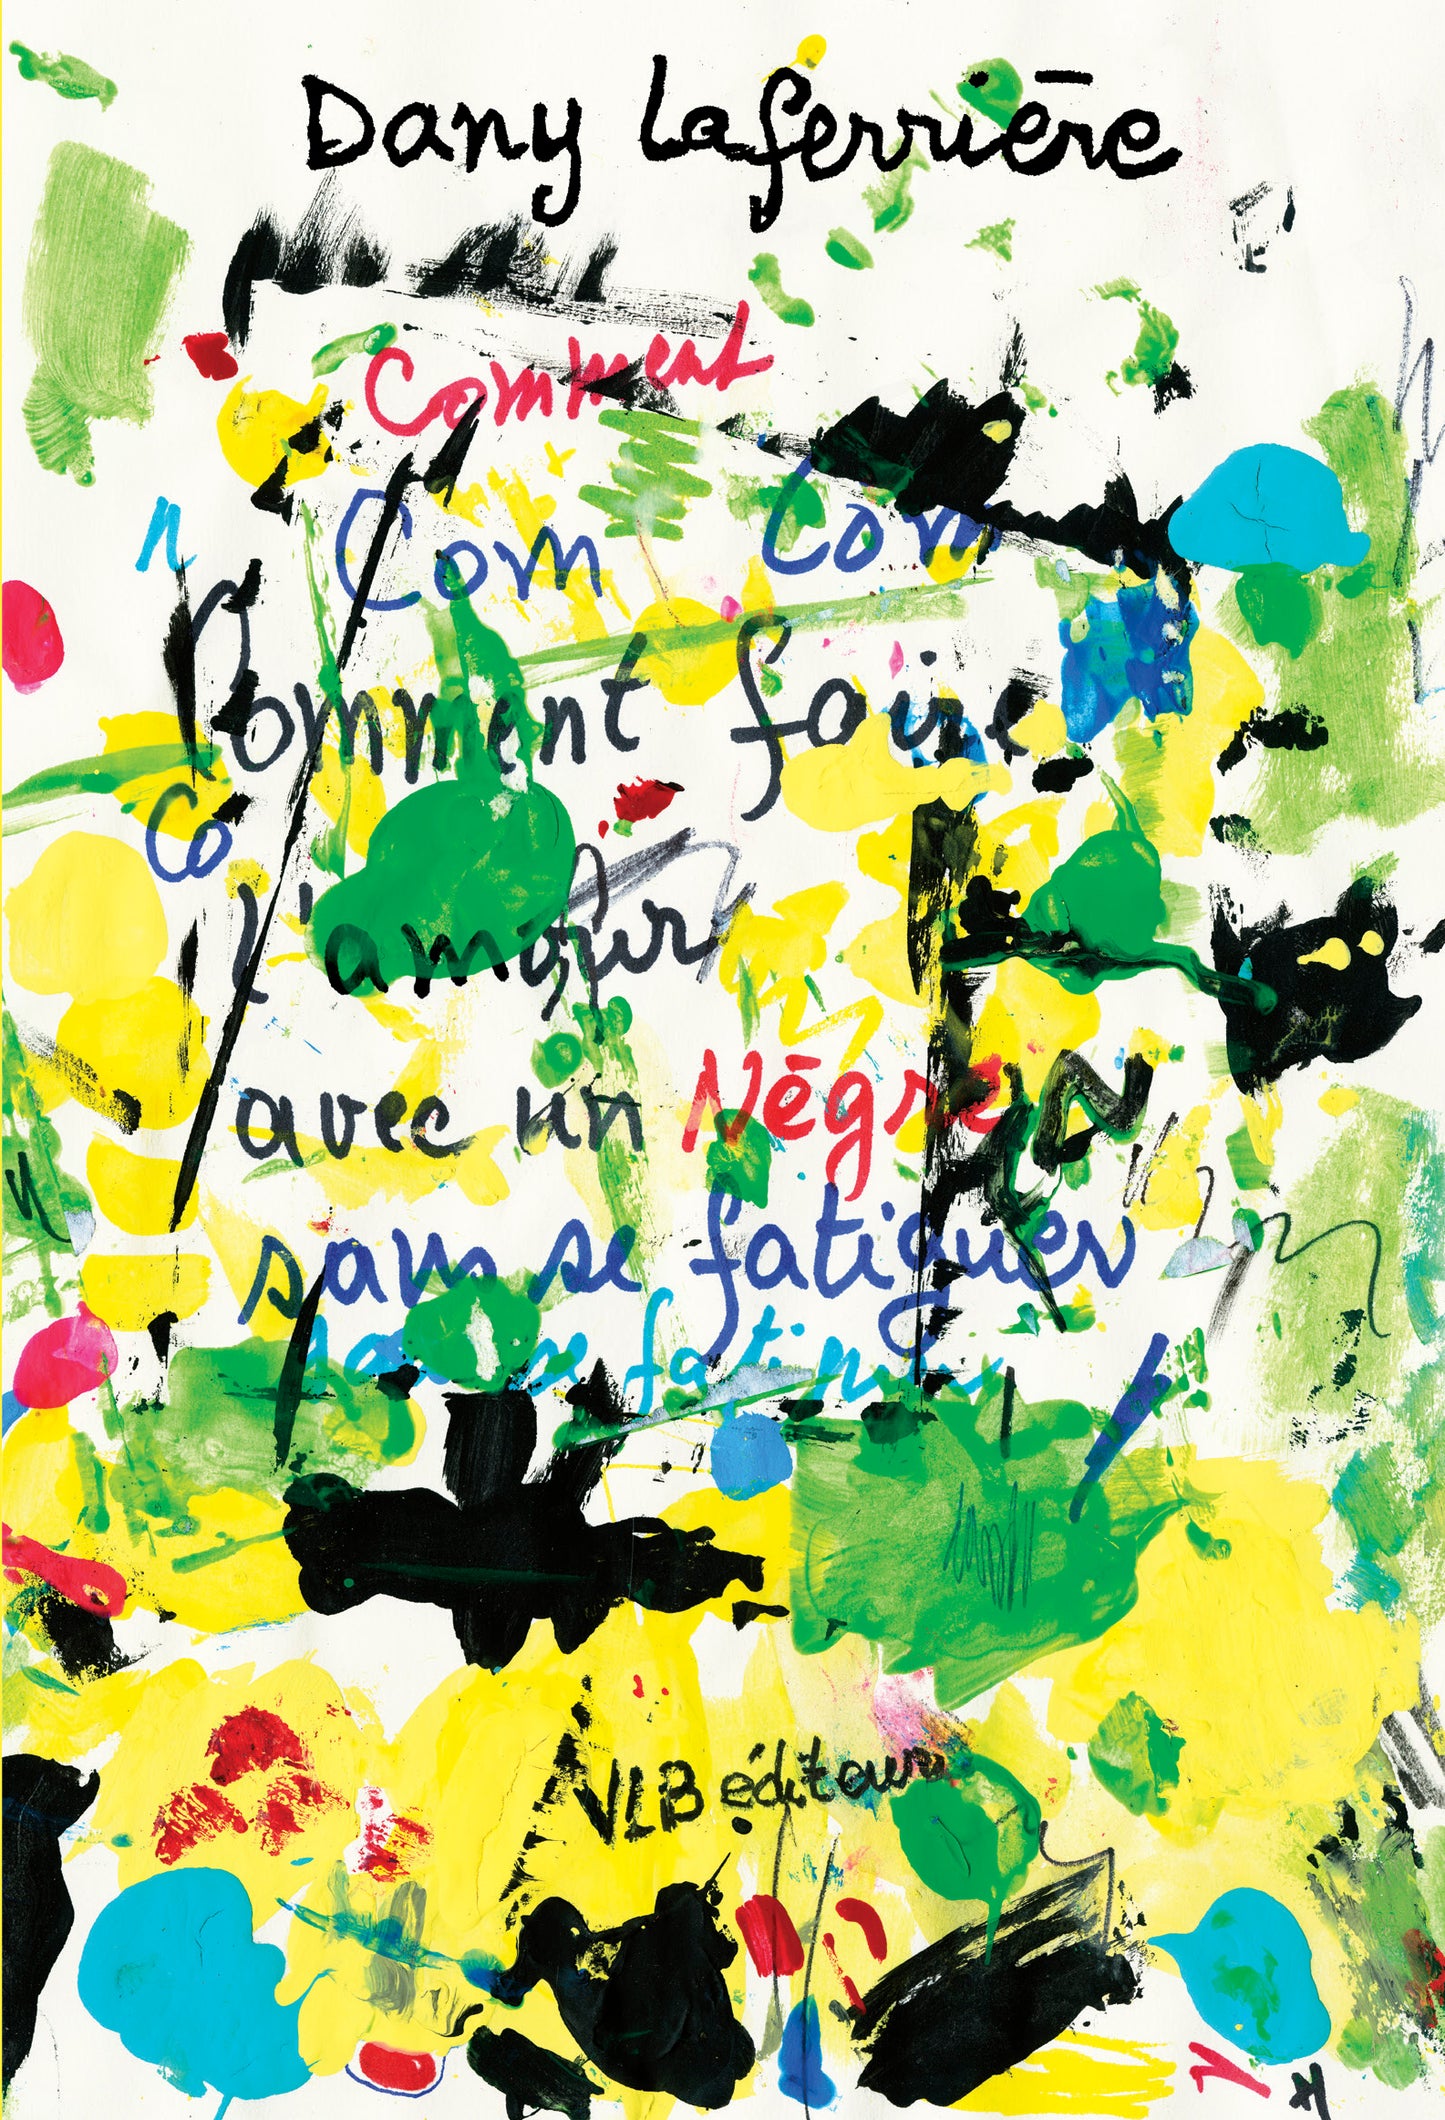 Dany Laferrière
Comment
n Com Com
Comment faire
Co
l'amour
avec un Nègre N
sans se fatiguer
sans se fatiguer
VLB éditeur